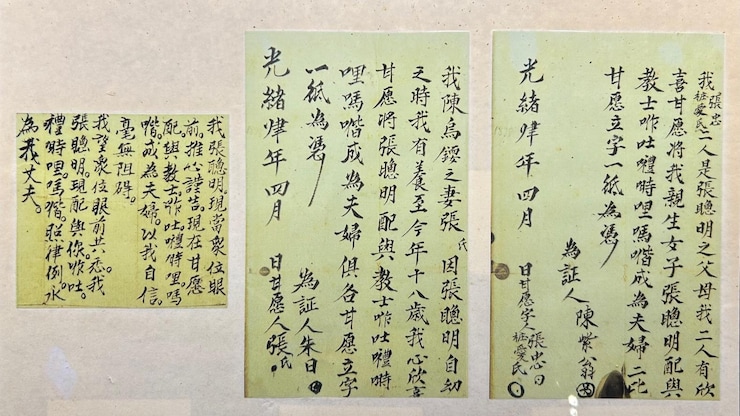 我張忠桩愛氏二人是張聰明之父母我二人有欣
喜甘愿將我親生女子張聰明配與
教士咋吐禮時哩嗎喈成為夫婦二比
甘愿立字一紙為憑
為証人陳紫翁
光緒肆年四月 日甘愿字人張忠桩愛氏
我陳烏鍐之妻張氏因張聰明自幼
之時我有養至今年十八歲我心欣喜
甘愿將張聰明配與教士咋吐禮時
哩嗎喈成為夫婦俱各甘愿立字
一紙為憑
為証人朱日
光緒肆年四月 日甘愿人張氏
我張聰明。現當衆位眼
前。推心謹告。現在甘愿
配與教士咋吐禮時哩嗎
喈。成為夫婦。以我自信。
毫無阻碍。
我望衆位眼前共 我
張聰明。現配與你。咋吐。
禮時。哩。嗎喈。照律例。永
為我丈夫。